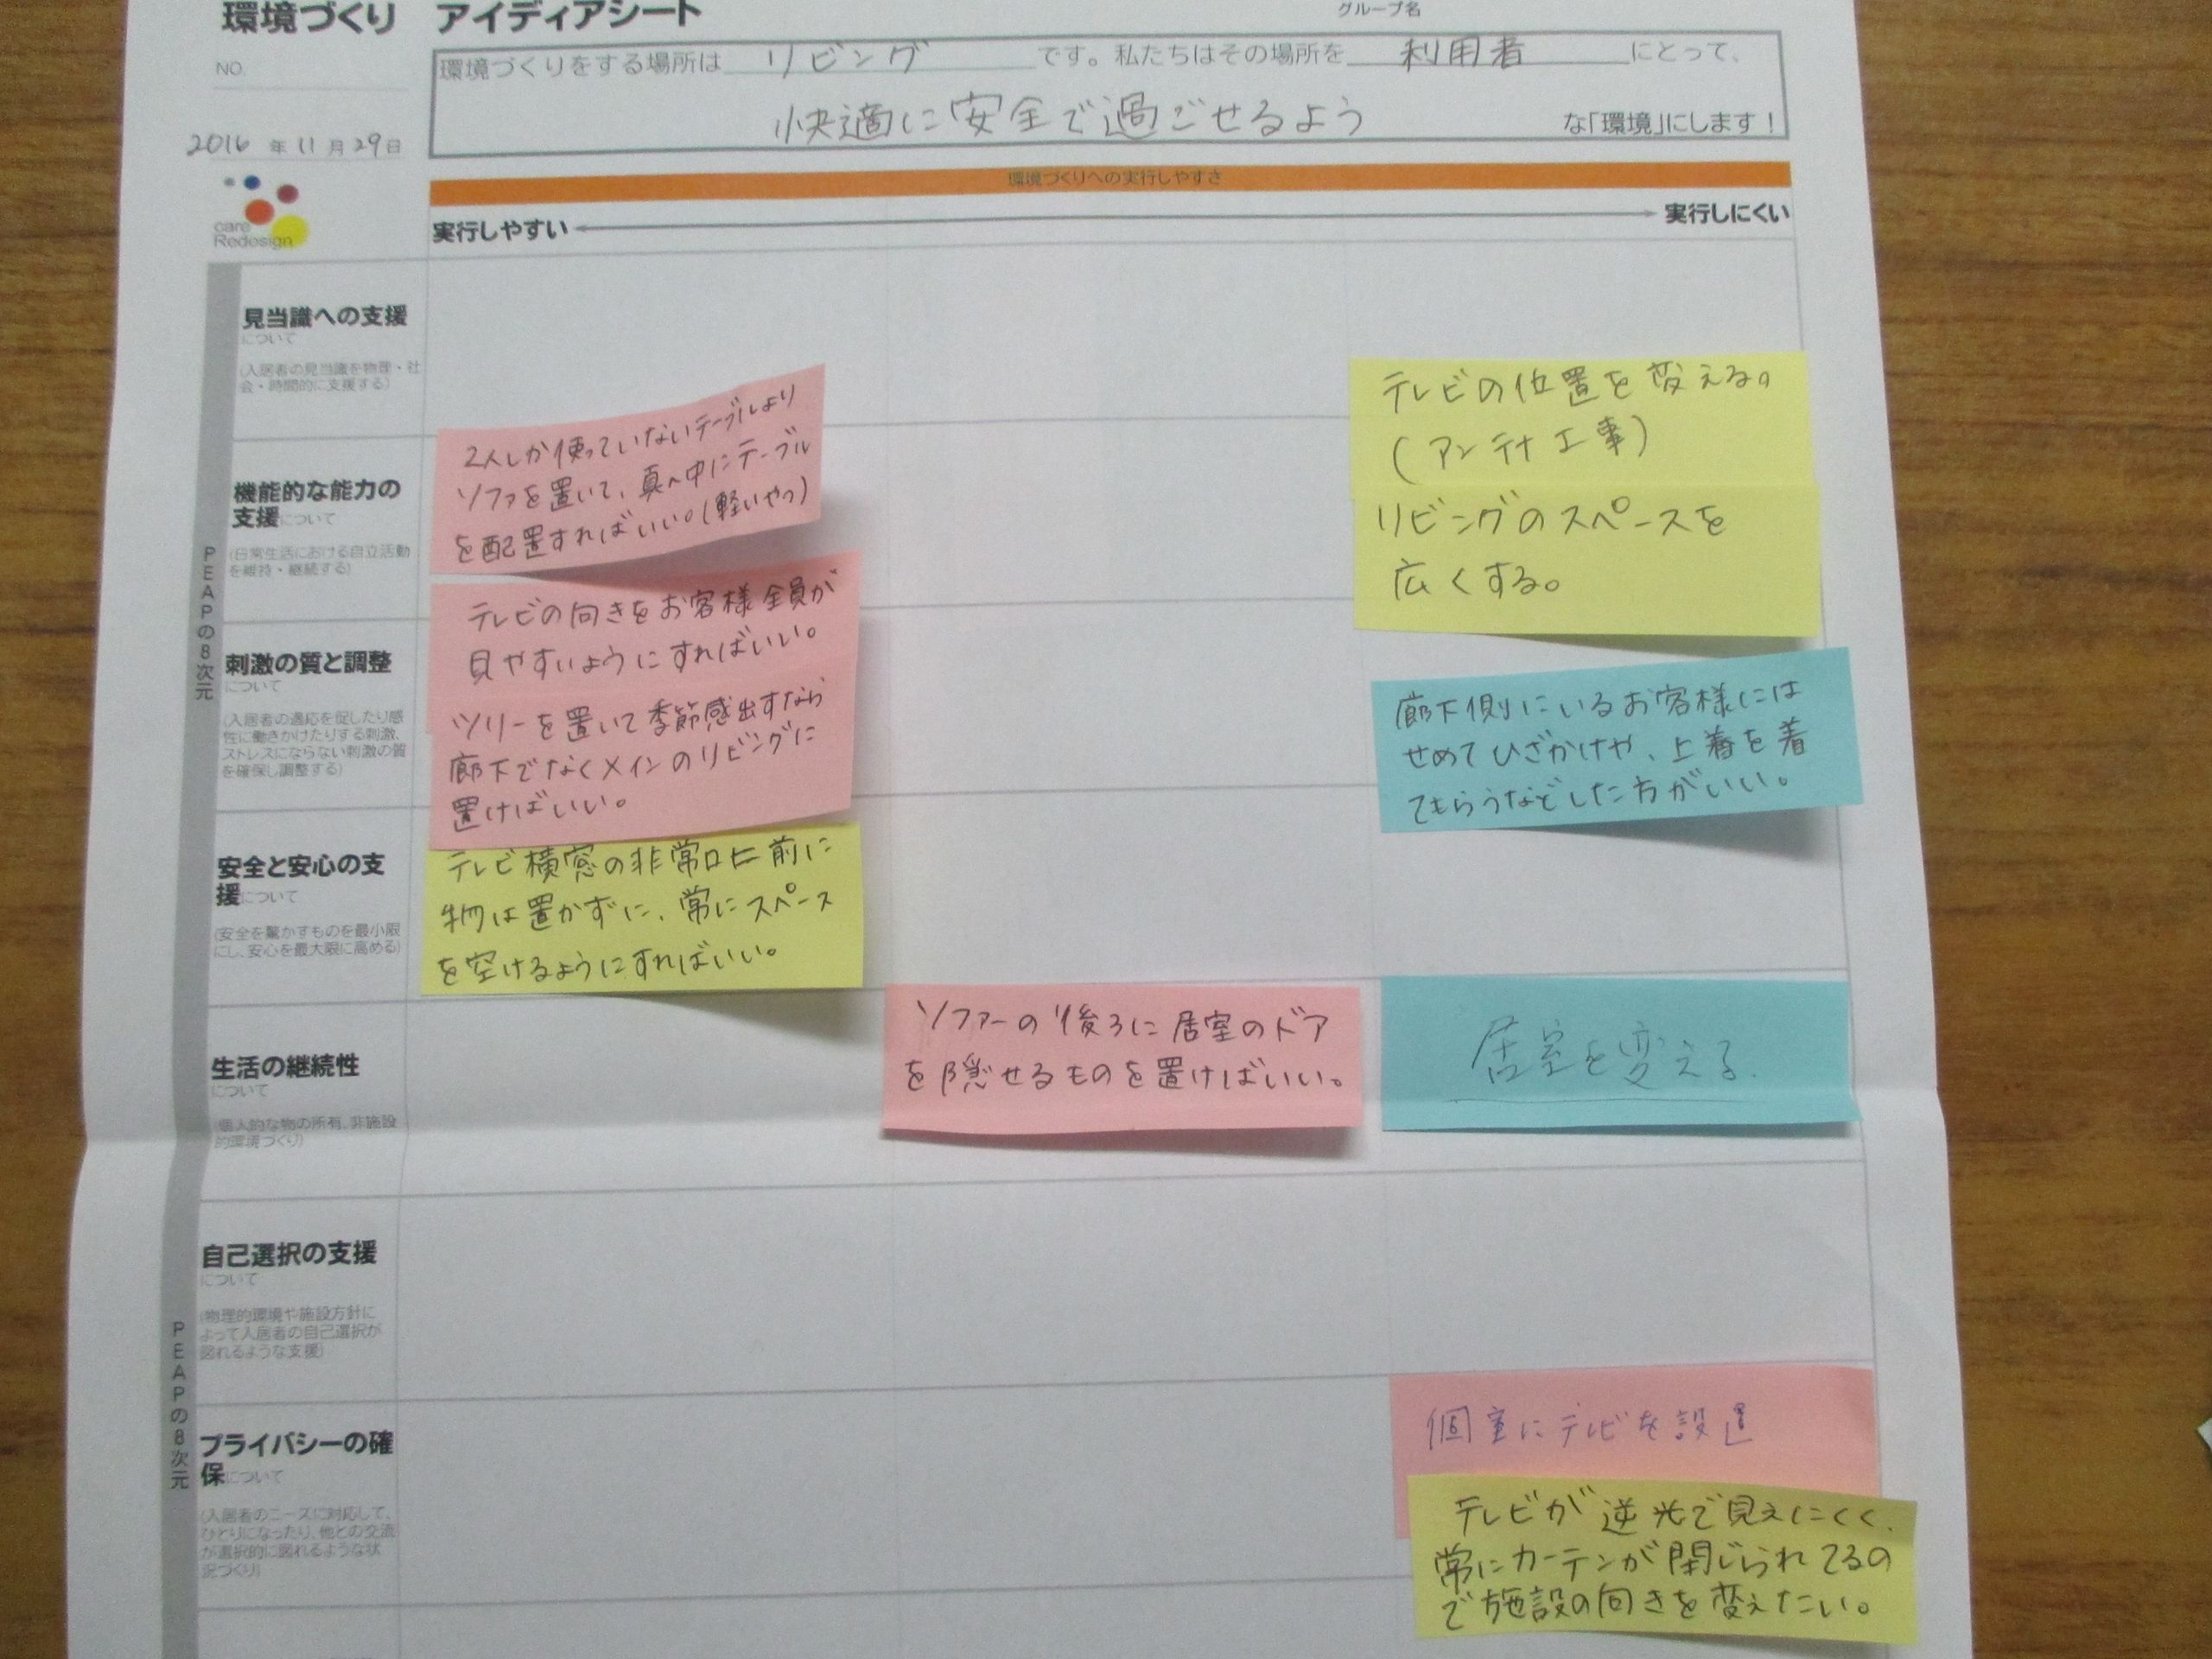 環境づくり アイディアシート
グループ名
NO.
環境づくりをする場所は リビング です。私たちはその場所を 利用者 にとって、
快適に安全で過ごせるよう な「環境」にします！
2016 年 11 月 29 日
care
Redesign
環境づくりへの実行しやすさ
実行しやすい
実行しにくい
PEAPの8次元
見当識への支援
について
(入居者の見当識を物理・社
会・時間的に支援する)
テレビの位置を変える。
(アンテナ工事)
機能的な能力の
支援について
(日常生活における自立活動
を維持・継続する)
2人しか使っていないテーブルより
ソファを置いて、真ん中にテーブル
を配置すればいい。(軽いやつ)
リビングのスペースを
広くする。
刺激の質と調整
について
(入居者の適応を促したり感
性に働きかけたりする刺激、
ストレスにならない刺激の質
を確保し調整する)
テレビの向きをお客様全員が
見やすいようにすればいい。
ツリーを置いて季節感出すなら
廊下でなくメインのリビングに
置けばいい。
廊下側にいるお客様には
せめてひざかけや、上着を着
てもらうなどした方がいい。
安全と安心の支
援について
(安全を脅かすものを最小限
にし、安心を最大限に高める)
テレビ横窓の非常口に前に
物は置かずに、常にスペース
を空けるようにすればいい。
生活の継続性
について
(個人的な物の所有、非施設
的環境づくり)
ソファーの後ろに居室のドア
を隠せるものを置けばいい。
居室を変える.
自己選択の支援
について
(物理的環境や施設方針に
よって入居者の自己選択が
図れるような支援)
PEAPの8次元
プライバシーの確
保について
(入居者のニーズに対応して、
ひとりになったり、他との交流
が選択的に図れるような状
況づくり)
個室にテレビを設置
テレビが逆光で見えにくく、
常にカーテンが閉じられてるの
で施設の向きを変えたい。